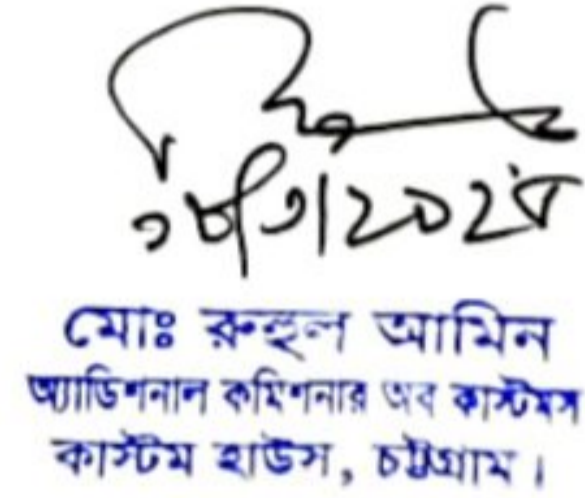 মোঃ রুহুল আমিন
অ্যাডিশনাল কমিশনার অব কাস্টমস
কাস্টম হাউস, চট্টগ্রাম।